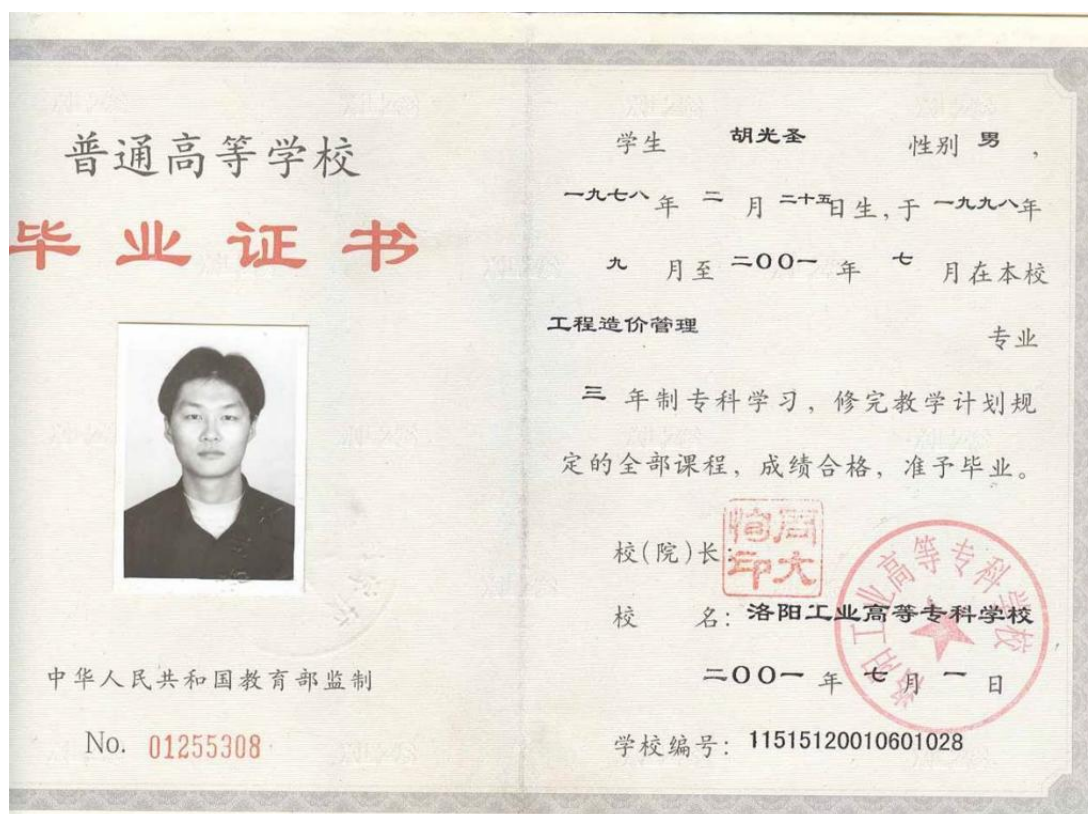 普通高等学校
毕业证书
中华人民共和国教育部监制
No. 01255308
学生 胡光圣 性别 男，
一九七八年 二 月 二十五日生，于 一九九八年
九 月至 二〇〇一 年 七 月在本校
工程造价管理 专业
三 年制专科学习，修完教学计划规
定的全部课程，成绩合格，准予毕业。
校(院)长：
周大
恂印
校 名：洛阳工业高等专科学校
洛阳工业高等专科学校
二〇〇一 年 七 月 一 日
学校编号：11515120010601028